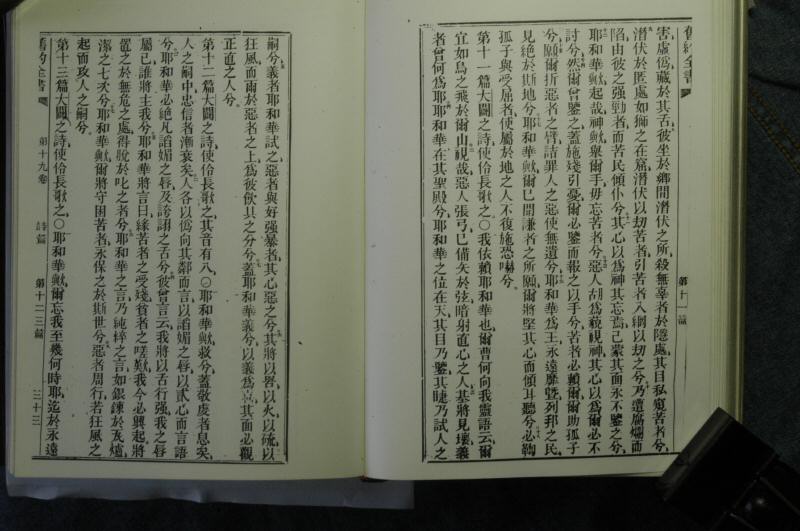 舊約全書
第十一篇
害虛僞藏於其舌彼坐於鄉間潛伏之所殺無辜者於隱處其目私窺苦者兮
潛伏於匿處如獅之在窟潛伏以刼苦者引苦者入網以刼之兮乃遭腐爛而
陷由彼之強勁者而苦民傾仆兮其心以爲神其忘焉己蒙其面永不鑒之兮
耶和華歟起哉神歟舉爾手毋忘苦者兮惡人胡爲藐視神其心以爲爾必不
討兮然爾曾鑒之蓋施殘引憂爾必鑒而報之以手兮苦者必賴爾爾助孤子
兮願爾折惡者之臂詰罪人之惡使無遺兮耶和華爲王永遠靡曁列邦之民
見絕於斯地兮耶和華歟爾已聞謙者之所願爾將堅其心而傾耳聽兮必鞫
孤子與受屈者使屬於地之人不復施恐嚇兮
第十一篇大闢之詩使伶長歌之○我依賴耶和華也爾曹何向我靈語云爾
宜如鳥之飛於爾山視哉惡人張弓已備矢於弦暗射直心之人基將見壞義
者曾何爲耶耶和華在其聖殿兮耶和華之位在天其目乃鑒其睫乃試人之
嗣兮義者耶和華試之惡者與好强暴者其心惡之兮其將以罟以火以硫以
狂風而雨於惡者之上爲彼飮具之分兮蓋耶和華義兮以義爲喜其面必觀
正直之人兮
第十二篇大闢之詩使伶長歌之其音有八○耶和華歟救兮蓋敬虔者息矣
人之嗣中忠信者漸衰矣人各以僞向其鄰而言以諂媚之唇以貳心而言語
兮耶和華必絕凡諂媚之唇及誇詡之舌兮彼曾言云我將以舌行强我之唇
屬己誰將主我兮耶和華將言曰緣苦者之受殘貧者之嗟歎我今必興起將
置之於無危之處得脫於叱之者兮耶和華之言乃純粹之言如銀鍊於瓦爐
潔之七次兮耶和華歟爾將守困苦者永保之於斯世兮惡者周行若狂風之
起而攻人之嗣兮
第十三篇大闢之詩使伶長歌之○耶和華歟爾忘我至幾何時耶迄於永遠
舊約全書
第十九卷
詩篇
第十二三篇
三十三